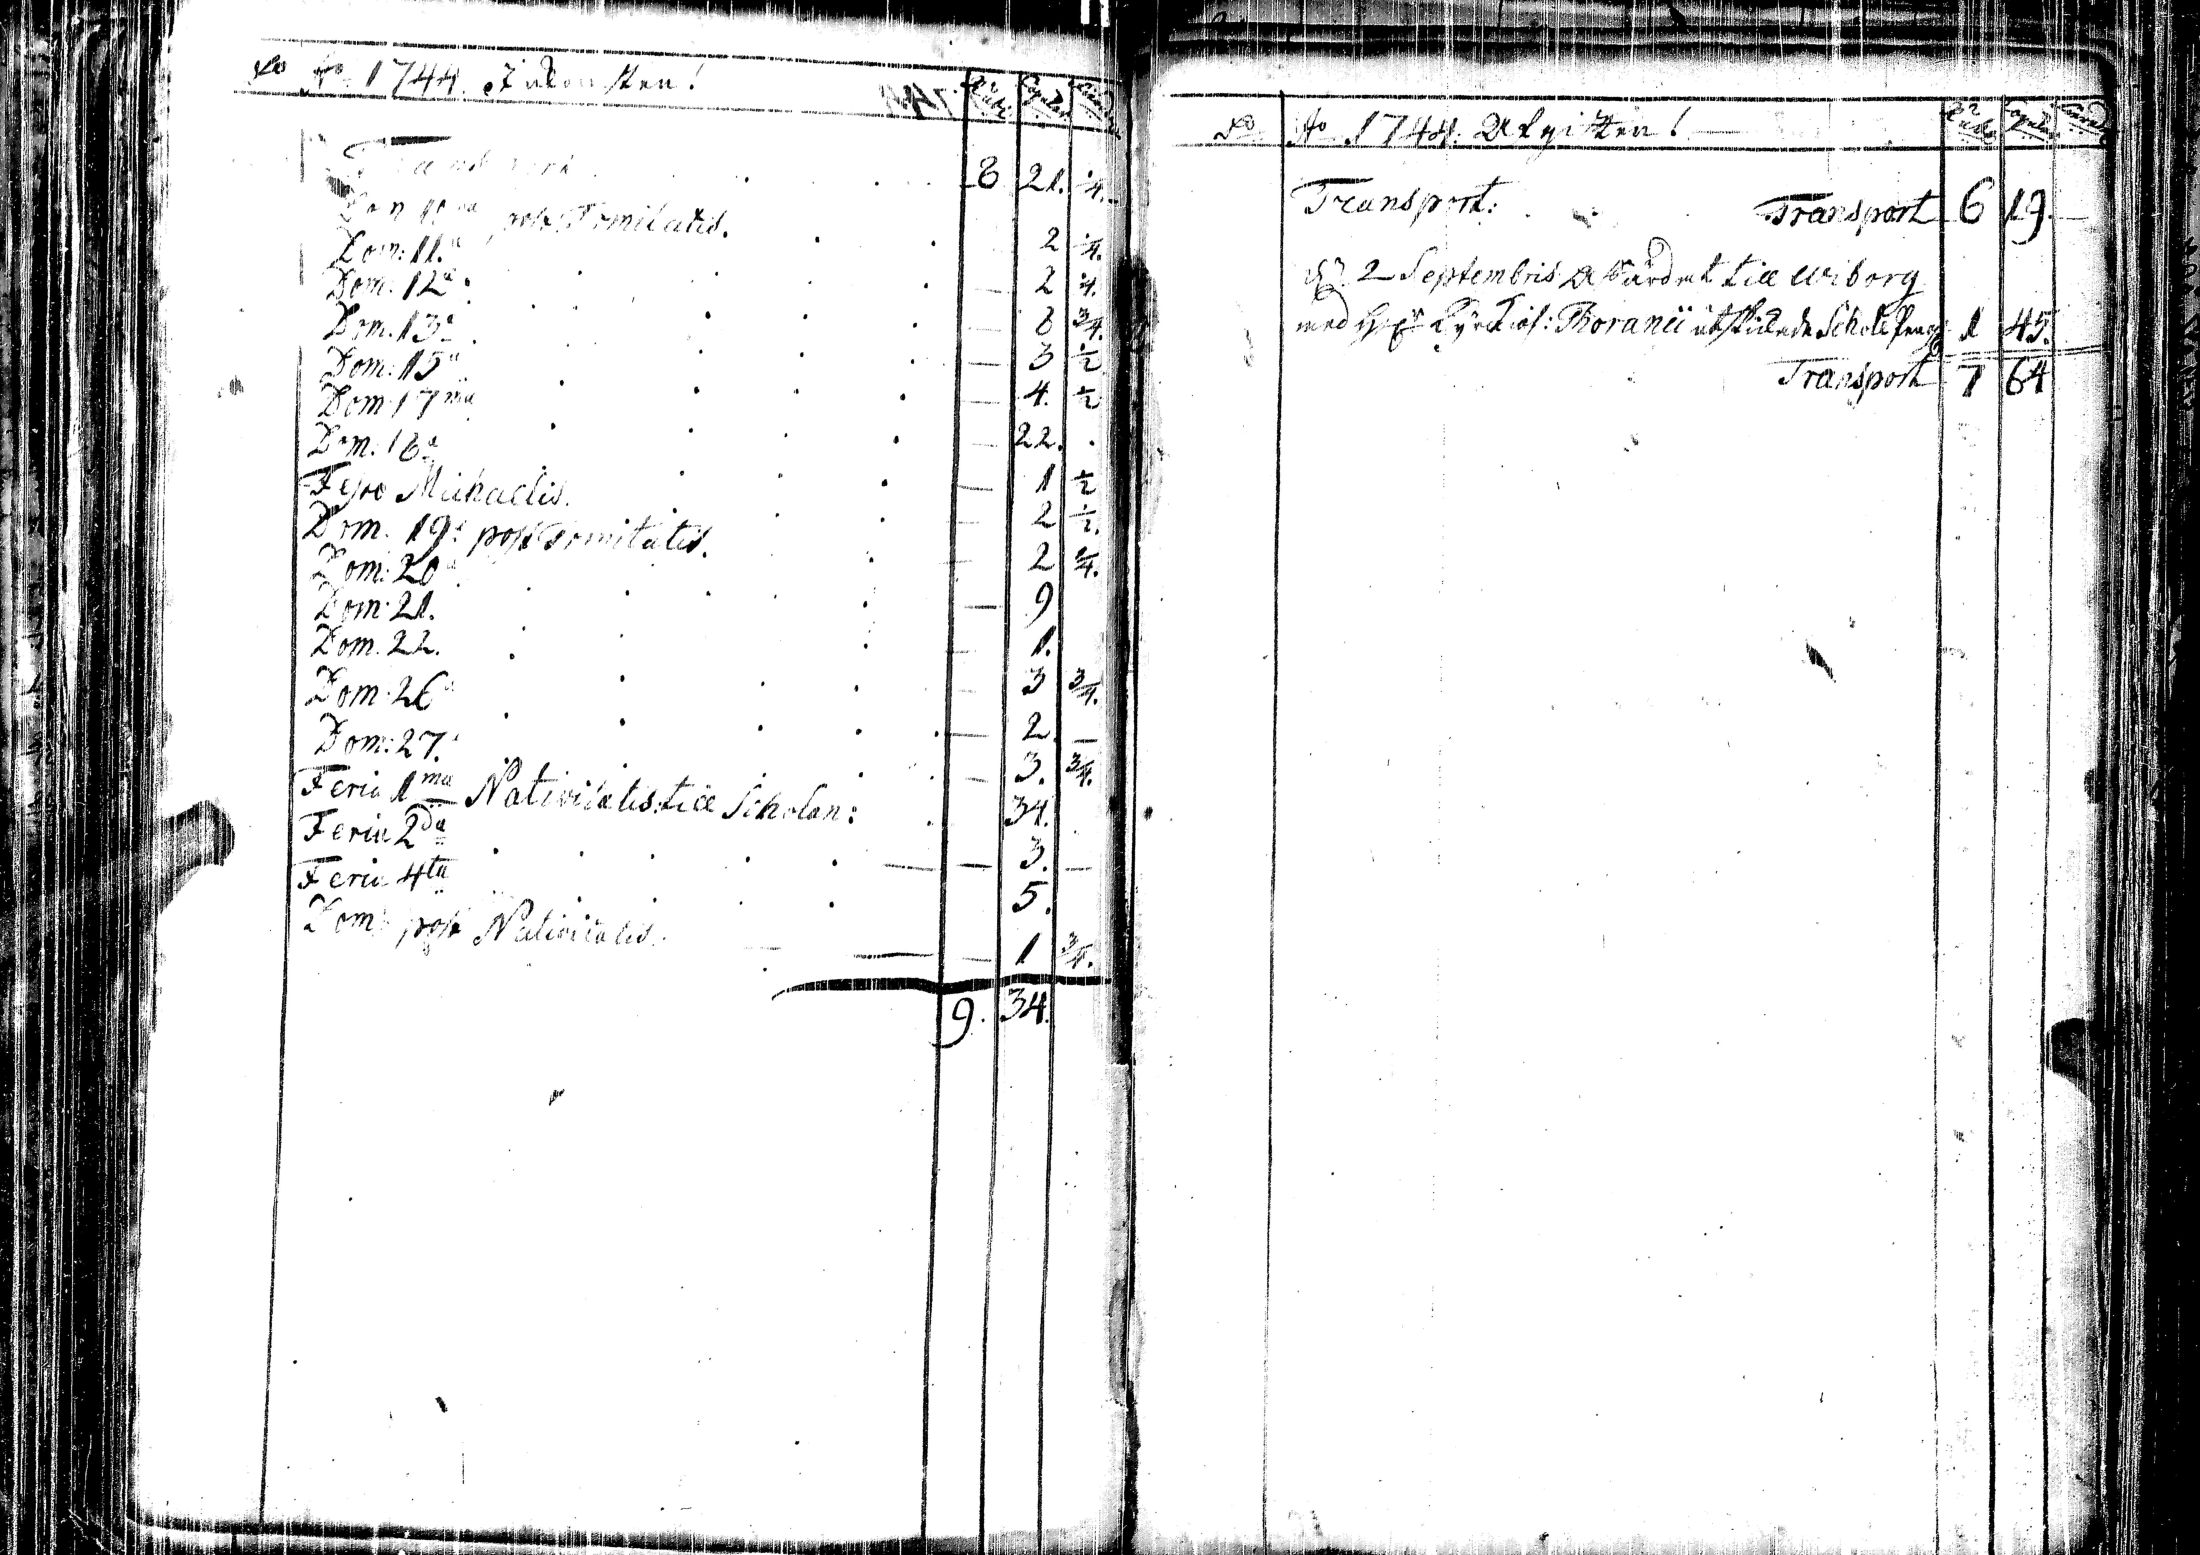 No Ao 1744. Inkomsten!
Transport 8 21. 1/4.
Dom 10ma post Trinitatis. 2 1/4.
Dom: 11.a 2 1/4.
Dom: 12a 8 3/4.
Dom. 13a 3 1/2
Dom: 15a 4. 1/2
Dom 17ma 22.
Dom. 18a 1 1/2
Festo Michaelis. 2 1/2.
Dom. 19a post Trinitatis. 2 3/4.
Dom: 20a 9
Dom: 21. 1.
Dom. 22. 3 3/4.
Dom: 26a 2 —
Dom: 27.a 3. 3/4.
Feria 1ma Nativitatis till Scholan: 34.
Feria 2da 3. —
Feria 4ta 5.
Dom: post Nativitatis. 1 3/4.
9. 34.
No Ao 1744. Utgiften!
Transport: Transport 6 19. —
d. 2 Septembris afsändt till Wiborg
med Thoranii Schole Peng: 1 45.
Transport 7 64